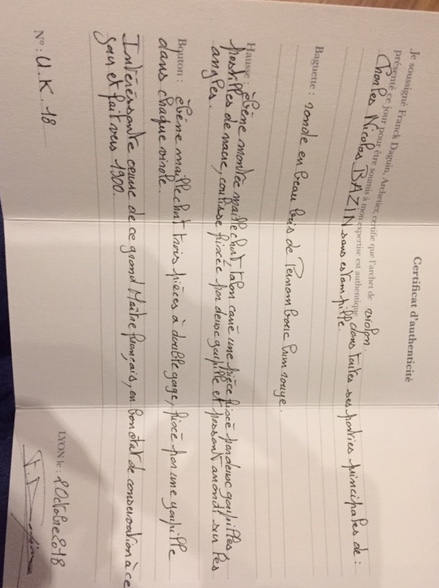 Certificat d'authenticité
Je soussigné Franck Daguin, Archetier, certifie que l'archet de violon
présenté ce jour pour être soumis à mon expertise est authentique dans toutes ses parties principales de :
Charles Nicolas BAZIN sans estampille.
Baguette : ronde en beau bois de Pernambouc brun rouge
Hausse : ébène montée maillechort, talon carré une pièce fixée par deux goupilles,
pastilles de nacre, coulisse fixée par deux goupilles et passant arrondi sur les
angles.
Bouton : ébène maillechort trois pièces à double gorge, fixée par une goupille
dans chaque virole.
Intéressante œuvre de ce grand Maître français, en bon état de conservation à ce
jour et fait vers 1900.
LYON le : 8 Octobre 2018
N° : U.K. 18